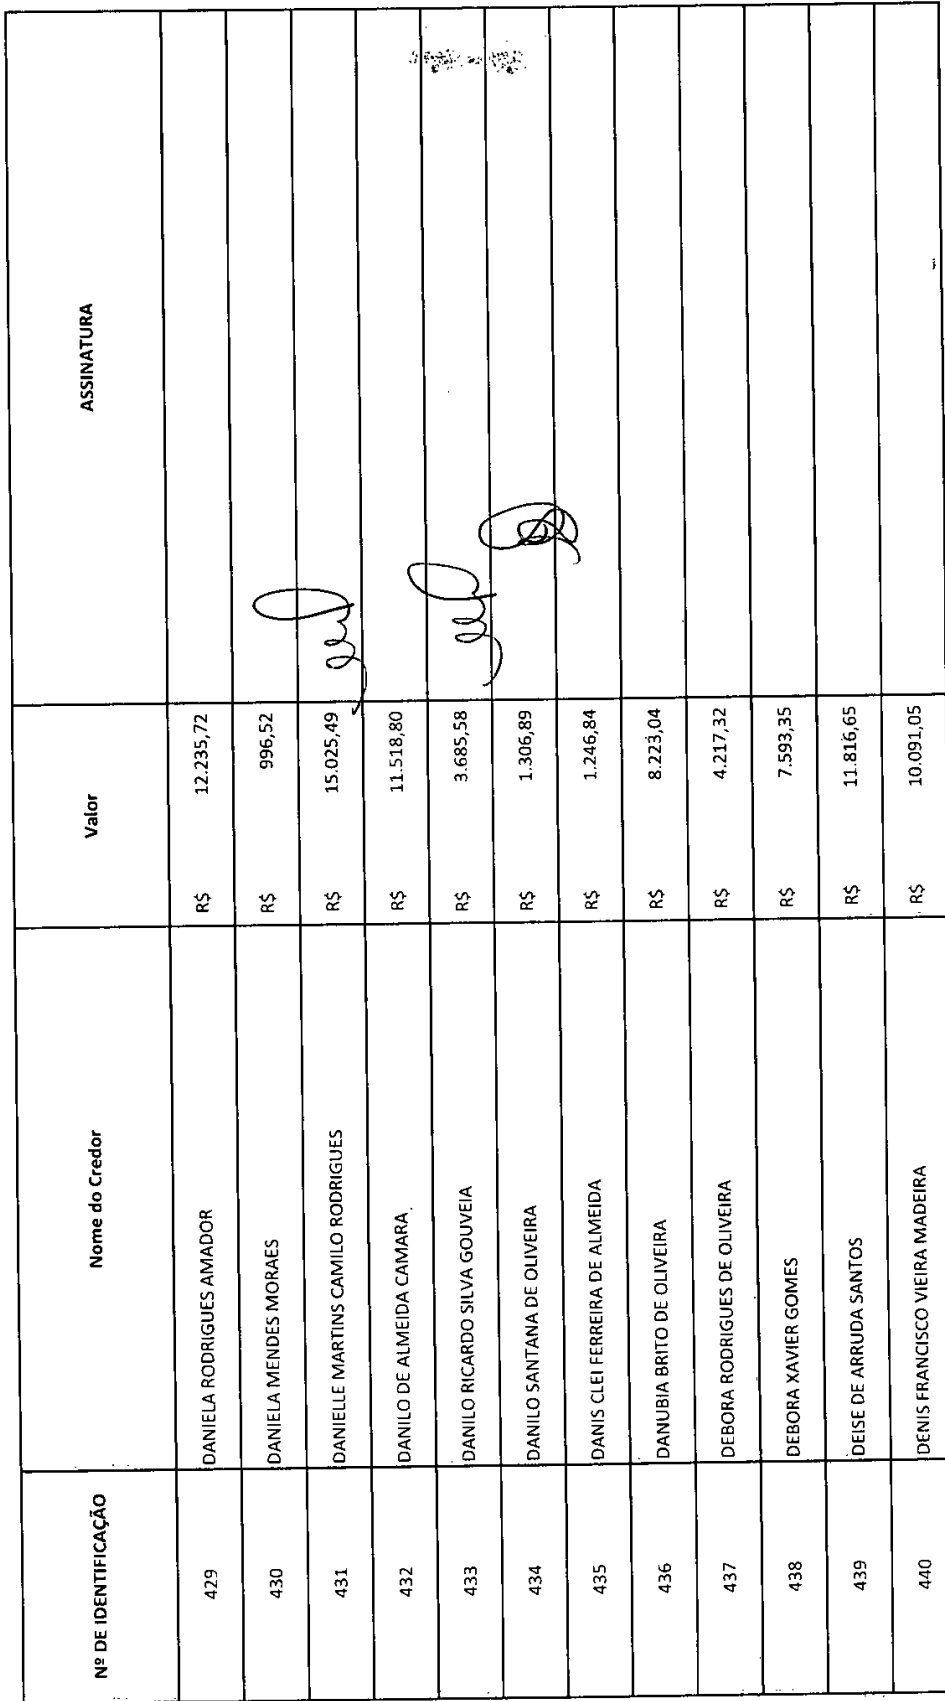 Nº DE IDENTIFICAÇÃO Nome do Credor Valor ASSINATURA
429 DANIELA RODRIGUES AMADOR R$ 12.235,72
430 DANIELA MENDES MORAES R$ 996,52
431 DANIELLE MARTINS CAMILO RODRIGUES R$ 15.025,49
432 DANILO DE ALMEIDA CAMARA R$ 11.518,80
433 DANILO RICARDO SILVA GOUVEIA R$ 3.685,58
434 DANILO SANTANA DE OLIVEIRA R$ 1.306,89
435 DANIS CLEI FERREIRA DE ALMEIDA R$ 1.246,84
436 DANUBIA BRITO DE OLIVEIRA R$ 8.223,04
437 DEBORA RODRIGUES DE OLIVEIRA R$ 4.217,32
438 DEBORA XAVIER GOMES R$ 7.593,35
439 DEISE DE ARRUDA SANTOS R$ 11.816,65
440 DENIS FRANCISCO VIEIRA MADEIRA R$ 10.091,05